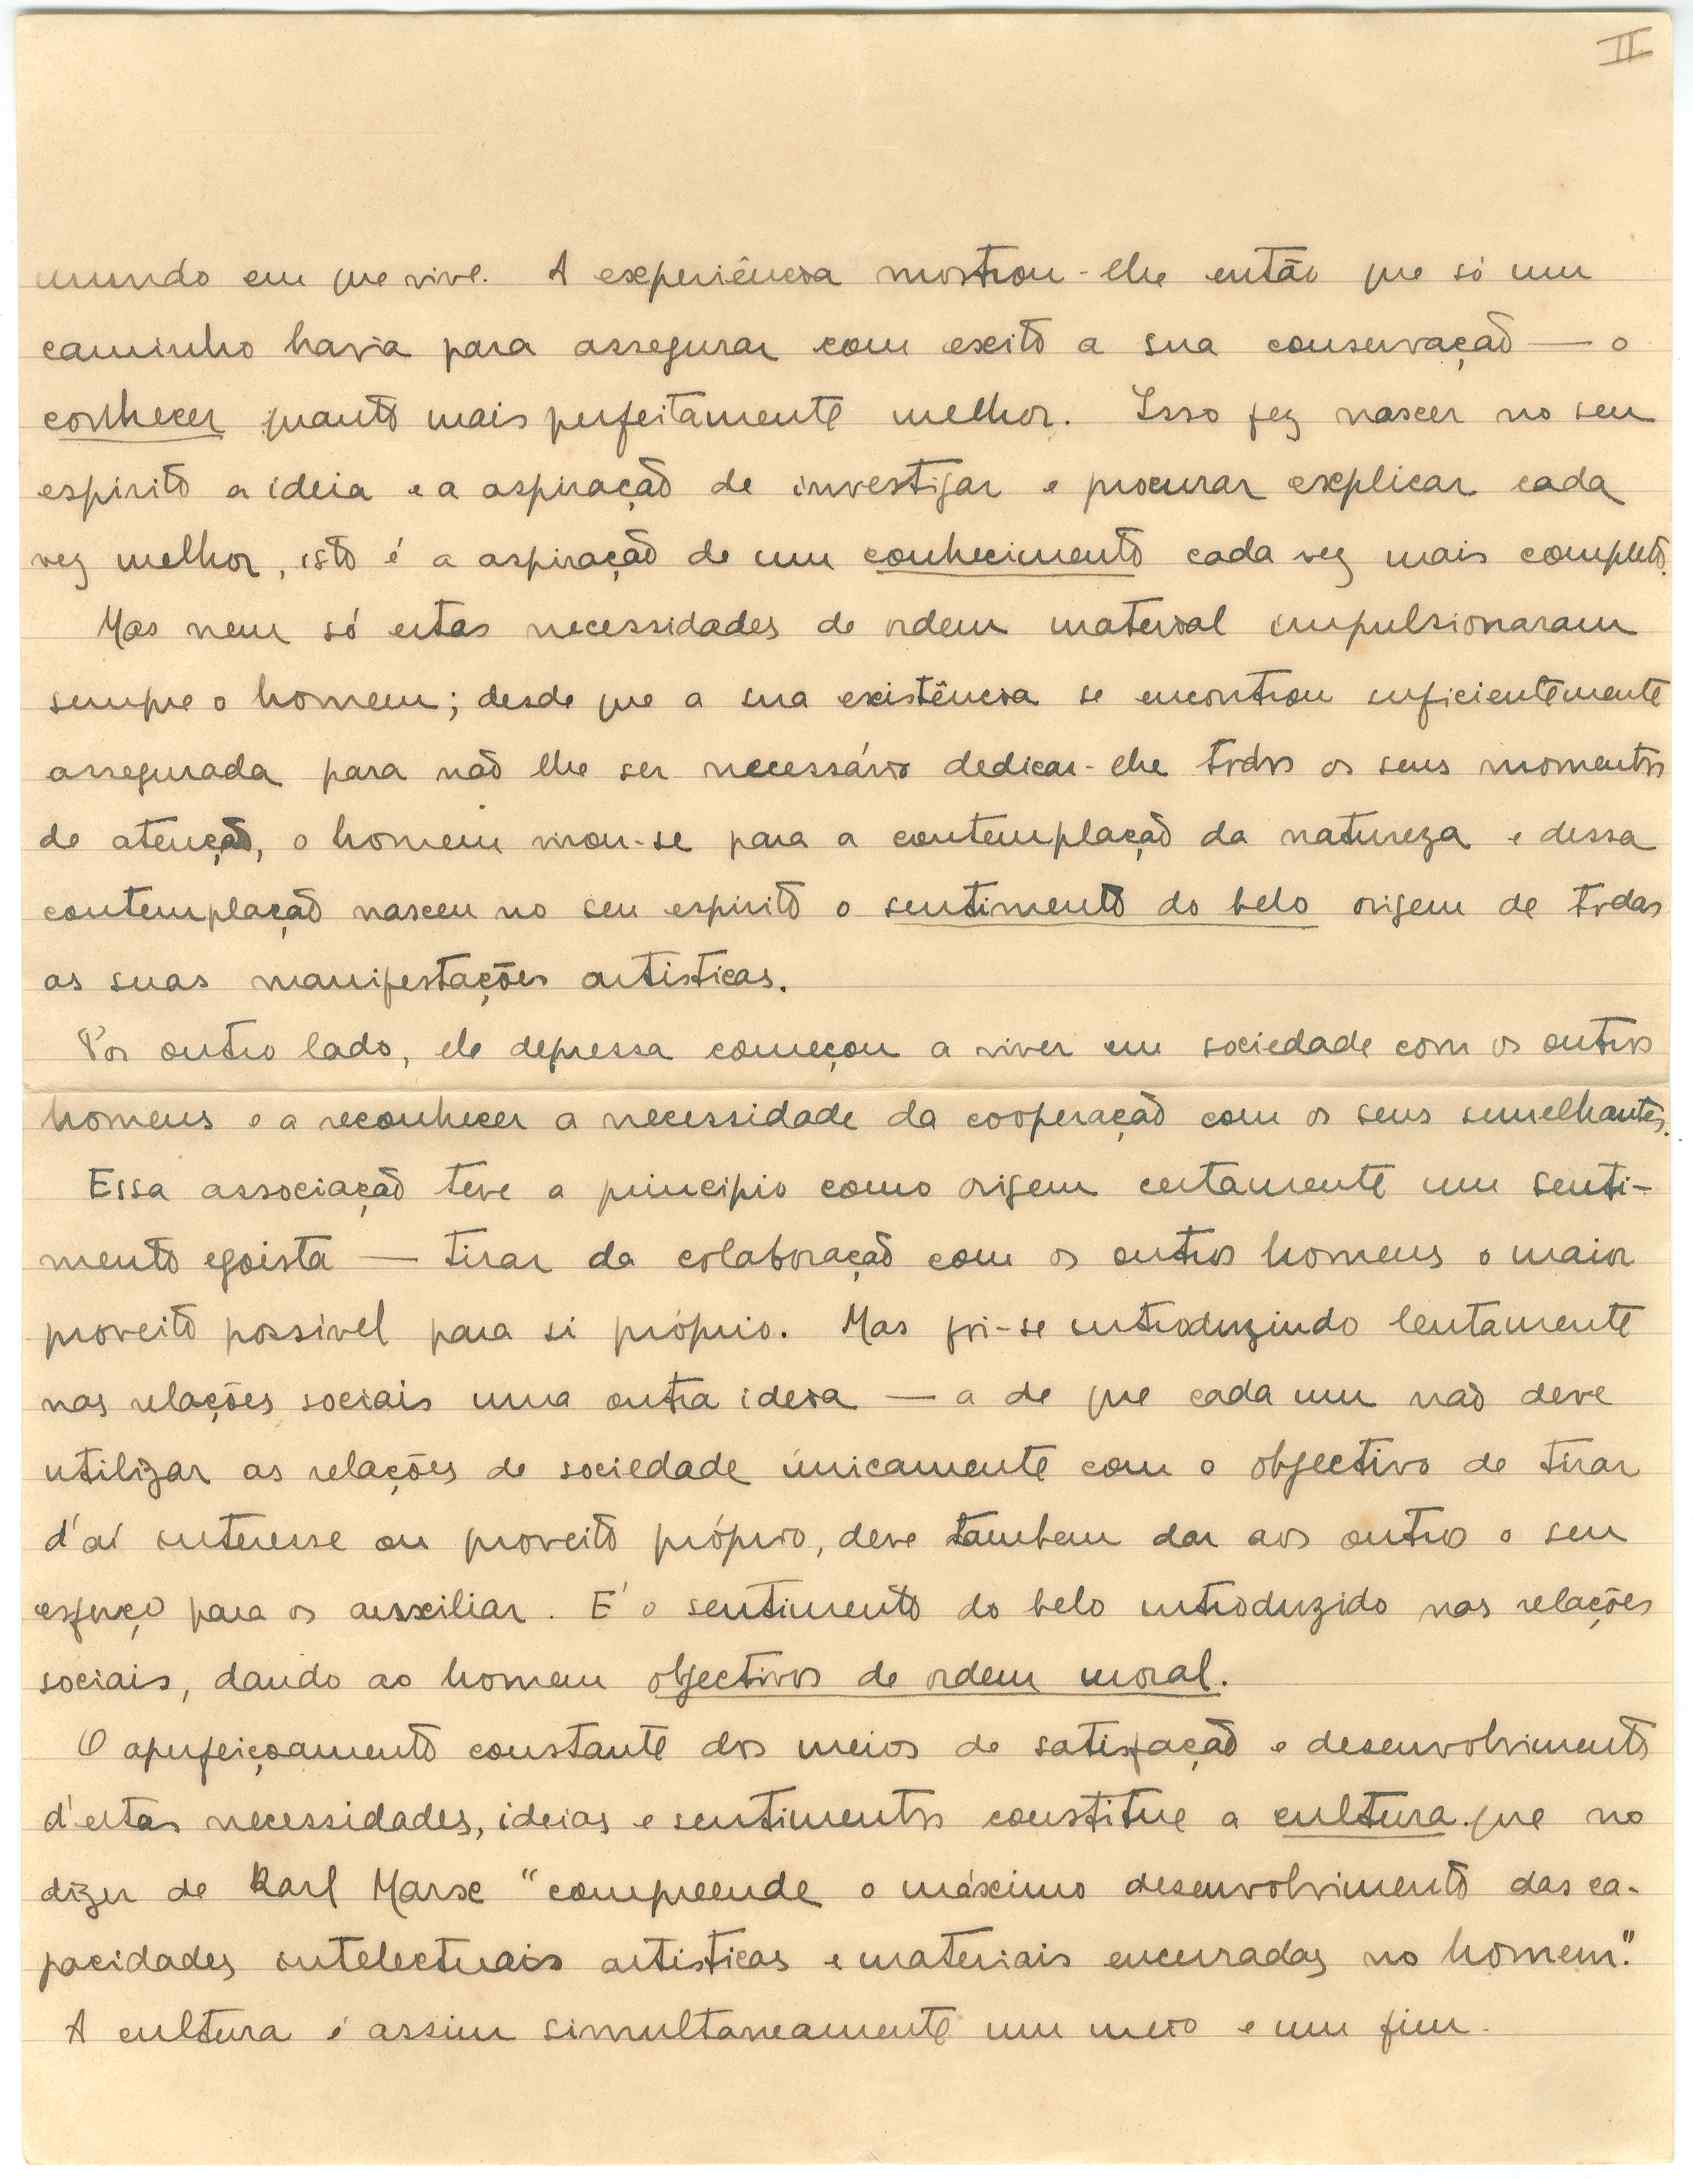 II
mundo em que vive. A experiência mostrou-lhe então que só um
caminho havia para assegurar com exito a sua conservação — o
conhecer quanto mais perfeitamente melhor. Isso fez nascer no seu
espirito a ideia e a aspiração de investigar e procurar explicar cada
vez melhor, isto é a aspiração de um conhecimento cada vez mais completo.
Mas nem só estas necessidades de ordem material impulsionaram
sempre o homem; desde que a sua existência se encontrou suficientemente
assegurada para não lhe ser necessário dedicar-lhe todos os seus momentos
de atenção, o homem virou-se para a contemplação da natureza e dessa
contemplação nasceu no seu espirito o sentimento do belo origem de todas
as suas manifestações artisticas.
Por outro lado, ele depressa começou a viver em sociedade com os outros
homens e a reconhecer a necessidade da cooperação com os seus semelhantes.
Essa associação teve a principio como origem certamente um senti-
mento egoista — tirar da colaboração com os outros homens o maior
proveito possivel para si próprio. Mas foi-se introduzindo lentamente
nas relações sociais uma outra ideia — a de que cada um não deve
utilizar as relações de sociedade únicamente com o objectivo de tirar
d'aí interesse ou proveito próprio, deve tambem dar aos outros o seu
esforço para os auxiliar. E' o sentimento do belo introduzido nas relações
sociais, dando ao homem objectivos de ordem moral.
O aperfeiçoamento constante dos meios de satisfação e desenvolvimento
d'estas necessidades, ideias e sentimentos constitue a cultura que no
dizer de Karl Marx "compreende o máximo desenvolvimento das ca-
pacidades intelectuais artisticas e materiais encerradas no homem".
A cultura é assim simultaneamente um meio e um fim.